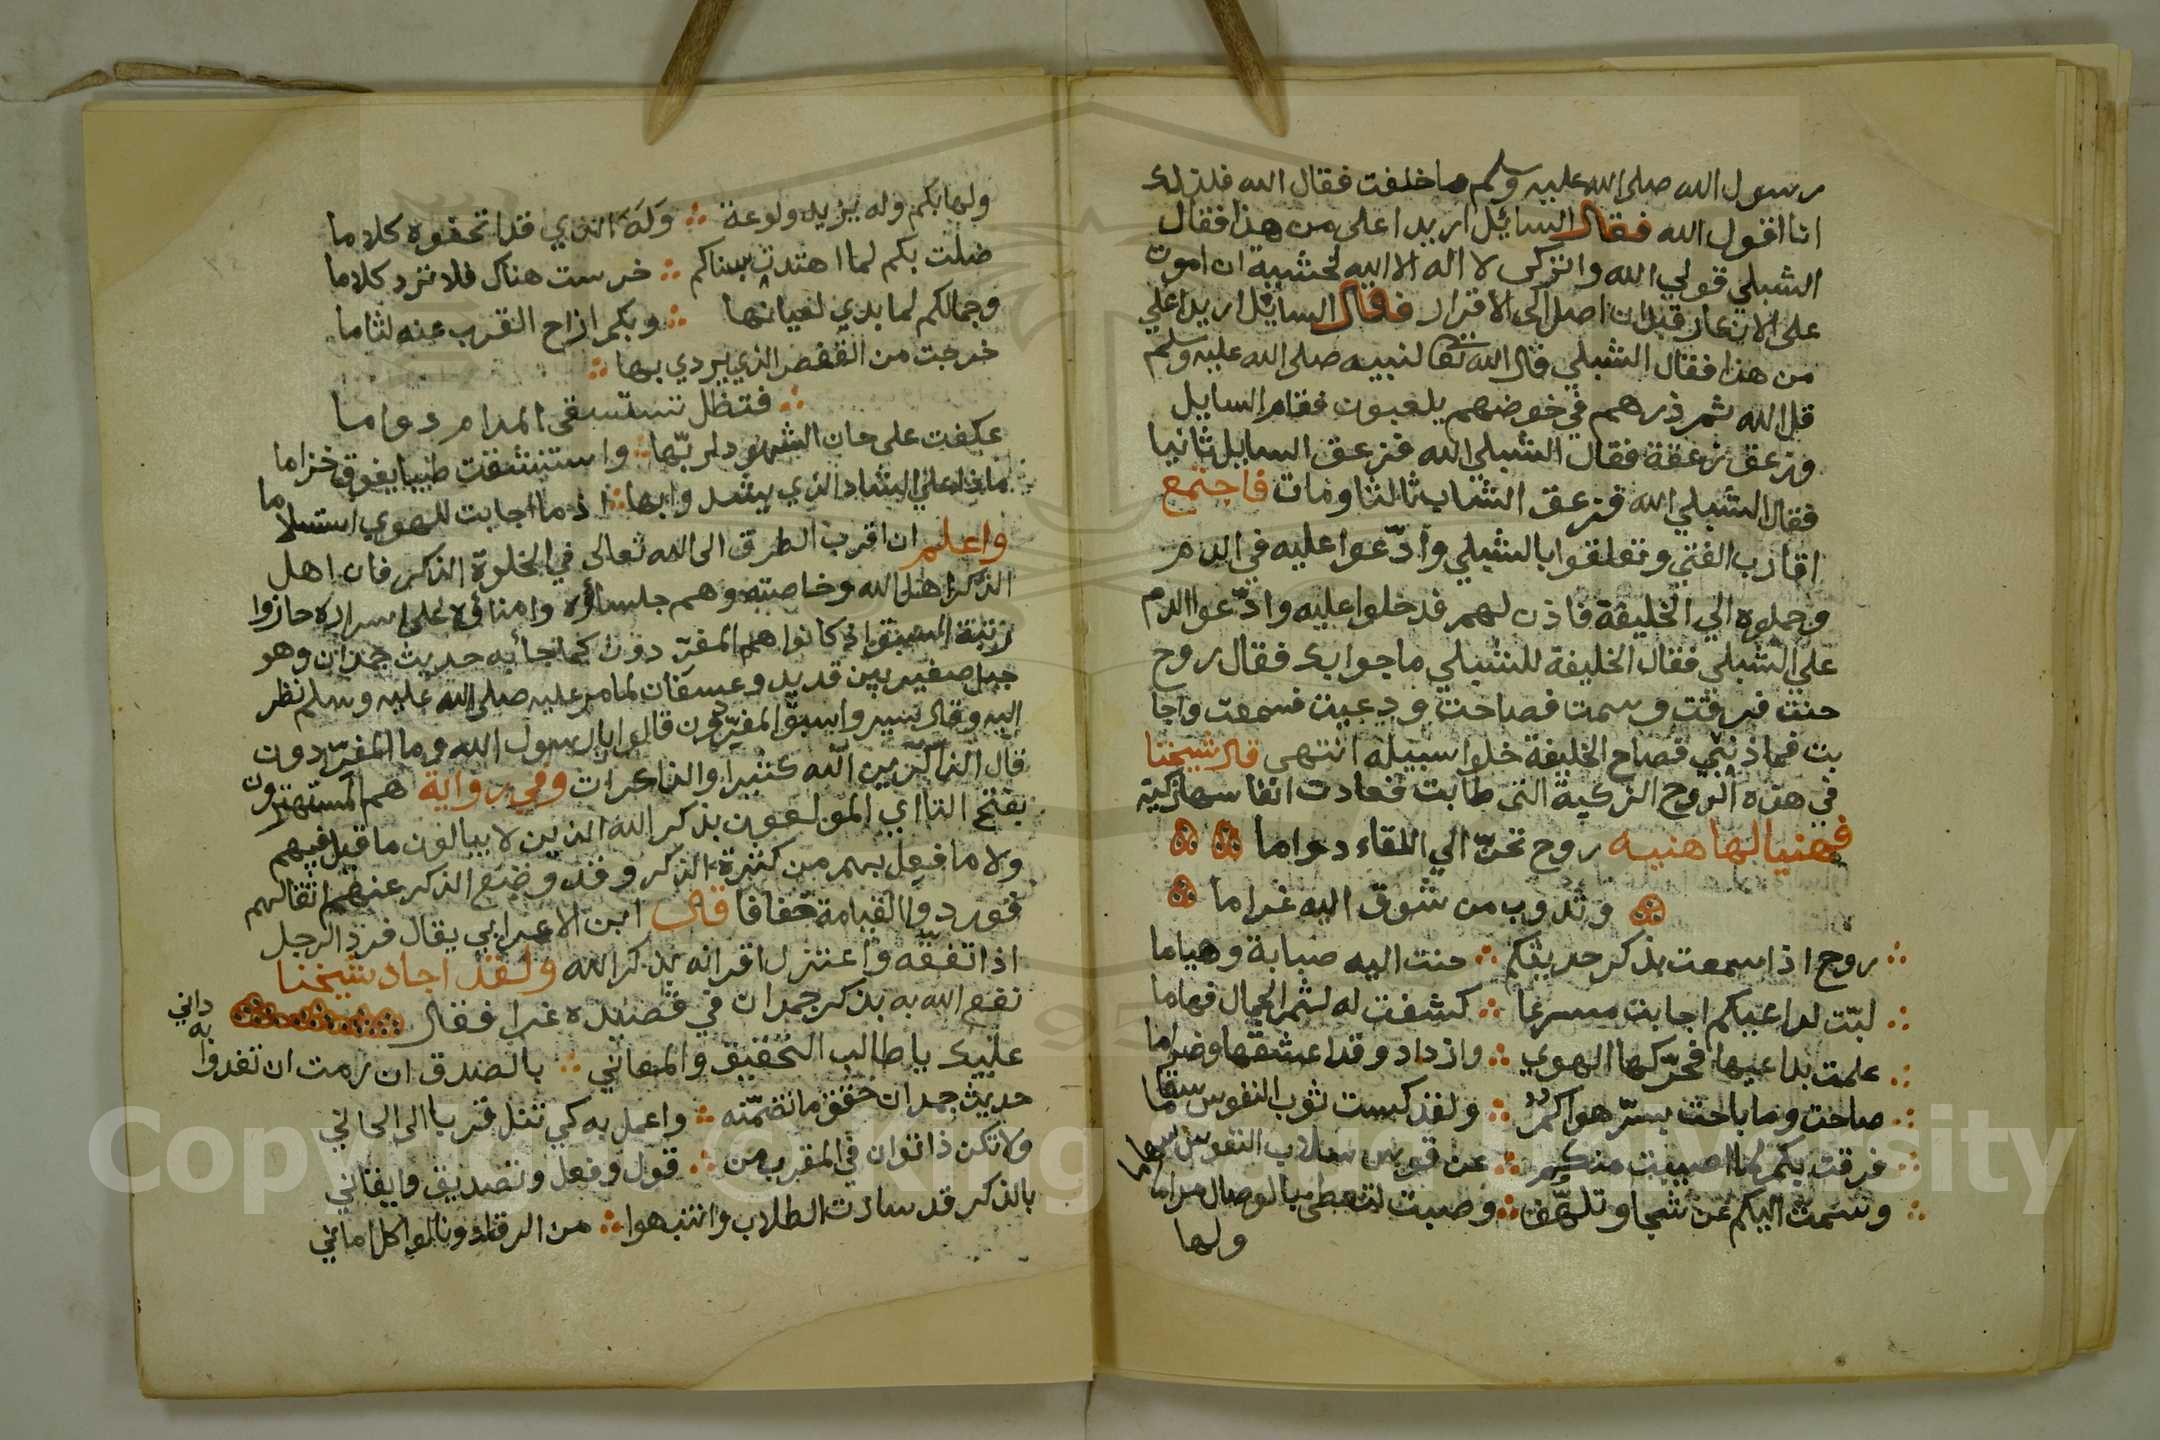 رسول الله صلى الله عليه وسلم ما خلفت فقال الله فلذلك
انا اقول الله فقال السائل اريد اعلى من هذا فقال
الشبلي قولي الله واتركي لا اله الا الله لخشية ان اموت
على الانكار قبل ان اصل الى الاقرار فقال السائل اريد اعلي
من هذا فقال الشبلي قال الله تعا لنبيه صلى الله عليه وسلم
قل الله ثم ذرهم في خوضهم يلعبون فقام السايل
وزعق زعقة فقال الشبلي الله فزعق السايل ثانيا
فقال الشبلي الله فزعق الشاب ثالثا ومات فاجتمع
اقارب الفتي وتعلقوا بالشبلي وادّعوا عليه في الدم
وحملوه الي الخليفة فاذن لهم فدخلوا عليه وادّعوا الدم
علي الشبلي فقال الخليفة للشبلي ما جوابك فقال روح
حنت فرقت وسمت فصاحت ودعيت فسمعت واجا
بت فما ذنبي فصاح الخليفة خلوا سبيله انتهى قال شيخنا
في هذه الروح الزكية التى طابت فعادت انفاسها زكية
فهنيا لها هنيه روح تحنّ الي اللقاء دواما
وتدوب من شوق اليه غراما
روح اذا سمعت بذكر حديثكم حنت اليه صبابة وهياما
لبّت لداعيكم اجابت مسرعا كشفت له لثم الجمال فهاما
علمت بداعيها فحرّكها الهوي وازداد وقدا عشقها وضراما
صاحت وما باحت بسرّ هواكم ولقد كست ثوب النفوس سقاما
فرقت بكم لما اصيبت منكم عن قوس سلاب النفوس سهاما
وسمت اليكم عن شجا وتلهّف وصبت لتعطى بالوصال مراما
ولها
ولها بكم وله يزيد ولوعة وَلَهَ الذي قد اتحفوه كلاما
ضلت بكم لما اهتدت بسناكم خرست هناك فلا ترد كلاما
وجمالكم لما بدي لعيانها وبكم ازاح القرب عنه لثاما
خرجت من القفص الذي يردي بها
فتظل تستسقى المدام دواما
عكفت على حان الشهود لربّها واستنشقت طيبا يفوق خزاما
ماذا علي الشاد الذي يشدوا بها اذ ما اجابت للهوي استسلاما
واعلم ان اقرب الطرق الى الله تعالى في الخلوة الذكر فان اهل
الذكر اهل الله وخاصته وهم جلساؤه وامناؤه على اسراره حازوا
رتبة السبق اذ كانوا هم المفرّدون كما جأ به حديث جمدان وهو
جبل صغير بين قديد وعسفان لما مر عليه صلى الله عليه وسلم نظر
اليه وقال سيروا سبق المفرّدون قالوا يا رسول الله وما المفرّدون
قال الذاكرين الله كثيرا والذاكرات وفي رواية هم المستهترون
بفتح التا اي المولعون بذكر الله الذين لا يبالون ما قيل فيهم
ولا ما فعل بهم من كثرة الذكر وقد وضع الذكر عنهم اثقالهم
فوردوا القيامة خفافا قال ابن الاعرابي يقال فرد الرجل
اذا تفقه واعتزل اقرانه بذكر الله ولقد اجاد شيخنا
نفع الله به بذكر جمدان في قصيده غرا فقال
عليك يا طالب التحقيق والمعاني بالصدق ان رمت ان تغدوا به داني
حديث جمدان حقق ما تضمّنه واعمل به كي تنل قربا الى الحاني
ولا تكن ذا توان في المقرب من قول وفعل وتصديق وايقاني
بالذكر قد سادت الطلاب وانتبهوا من الرقاد ونالوا كل اماني
Copyright © King Saud University